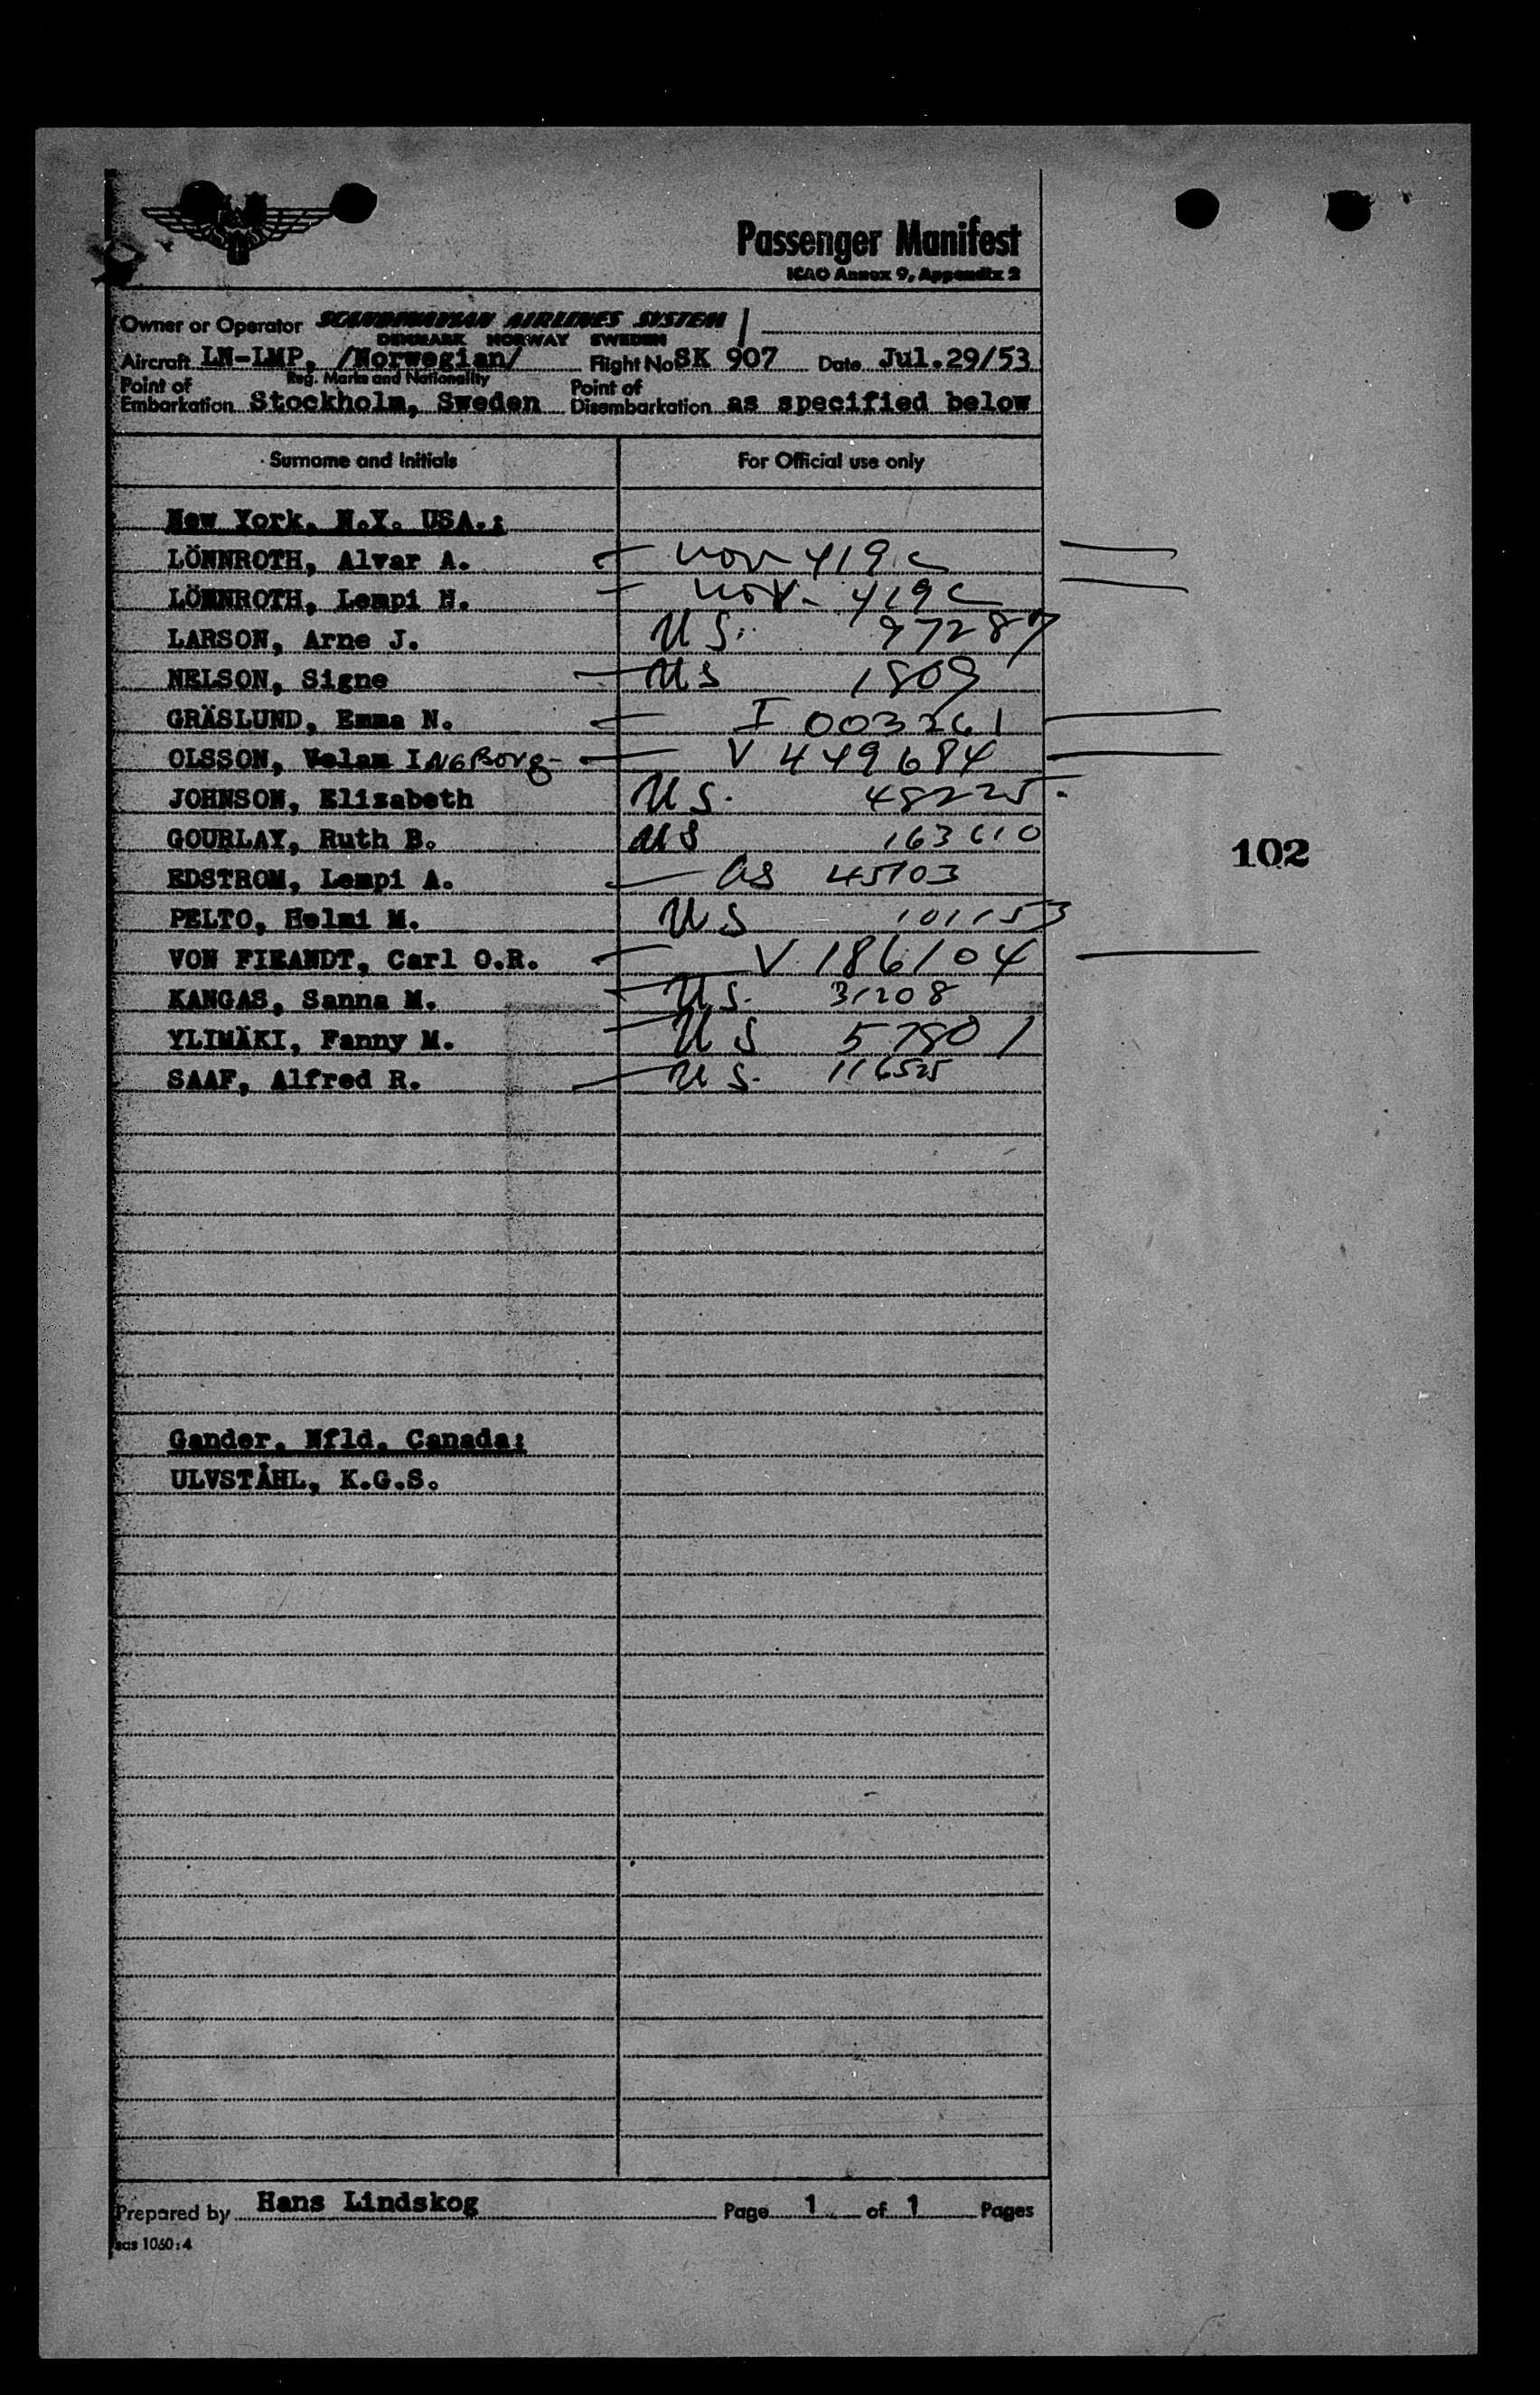 Passenger Manifest
ICAO Annex 9, Appendix 2
Owner or Operator SCANDINAVIAN AIRLINES SYSTEM
DENMARK NORWAY SWEDEN
Aircraft LN-LMP, /Norwegian/ Flight No SK 907 Date Jul.29/53
Reg. Marks and Nationality
Point of Embarkation Stockholm, Sweden Point of Disembarkation as specified below
Surname and Initials For Official use only
New York, N.Y. USA.:
LÖNNROTH, Alvar A. 419c
LÖNNROTH, Lempi H. 419c
LARSON, Arne J. US. 97287
NELSON, Signe US 1809
GRÄSLUND, Emma N. I 003261
OLSSON, Velam INGBorg V 449684
JOHNSON, Elizabeth US. 48225
GOURLAY, Ruth B. US 163610
102
EDSTROM, Lempi A. US 45103
PELTO, Helmi M. US 101153
VON FIEANDT, Carl O.R. V 186104
KANGAS, Sanna M. US. 31208
YLIMÄKI, Fanny M. US 57801
SAAF, Alfred R. US. 116525
Gander, Nfld, Canada:
ULVSTÅHL, K.G.S.
Prepared by Hans Lindskog Page 1 of 1 Pages
sas 1060:4